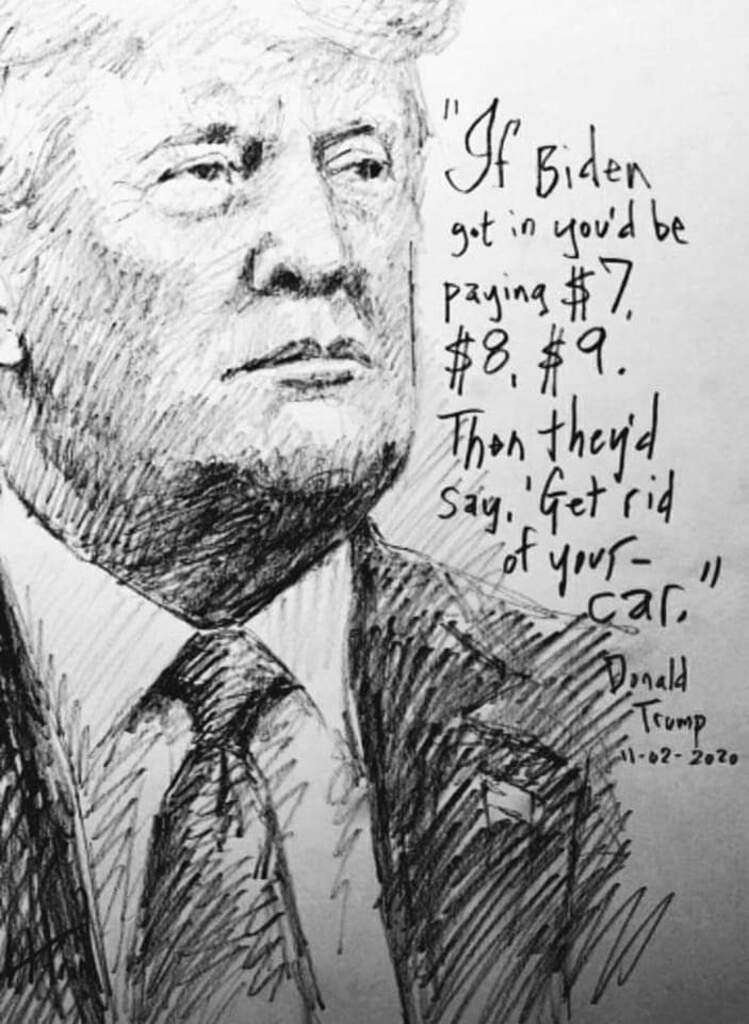 "If Biden
got in you'd be
paying $7,
$8, $9.
Then they'd
say, 'Get rid
of your
car."
Donald
Trump
11-02-2020